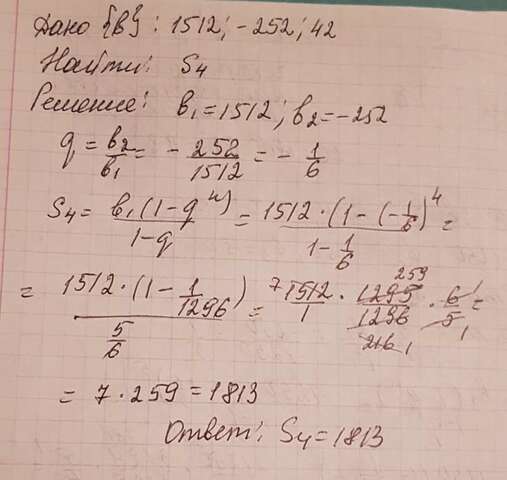 Дано {в} : 1512; -252; 42
Найти: S4
Решение: в₁=1512; в₂=-252
q = в₂/в₁ = - 252/1512 = - 1/6
S4 = в₁(1-q⁴)/1-q = 1512·(1-(-1/6)⁴/1-1/6 =
= 1512·(1-1/1296)/5/6 = 7 1512/1 · 259 1295/1296 216 1 · 6 1/5 1 =
= 7·259 = 1813
Ответ: S4=1813